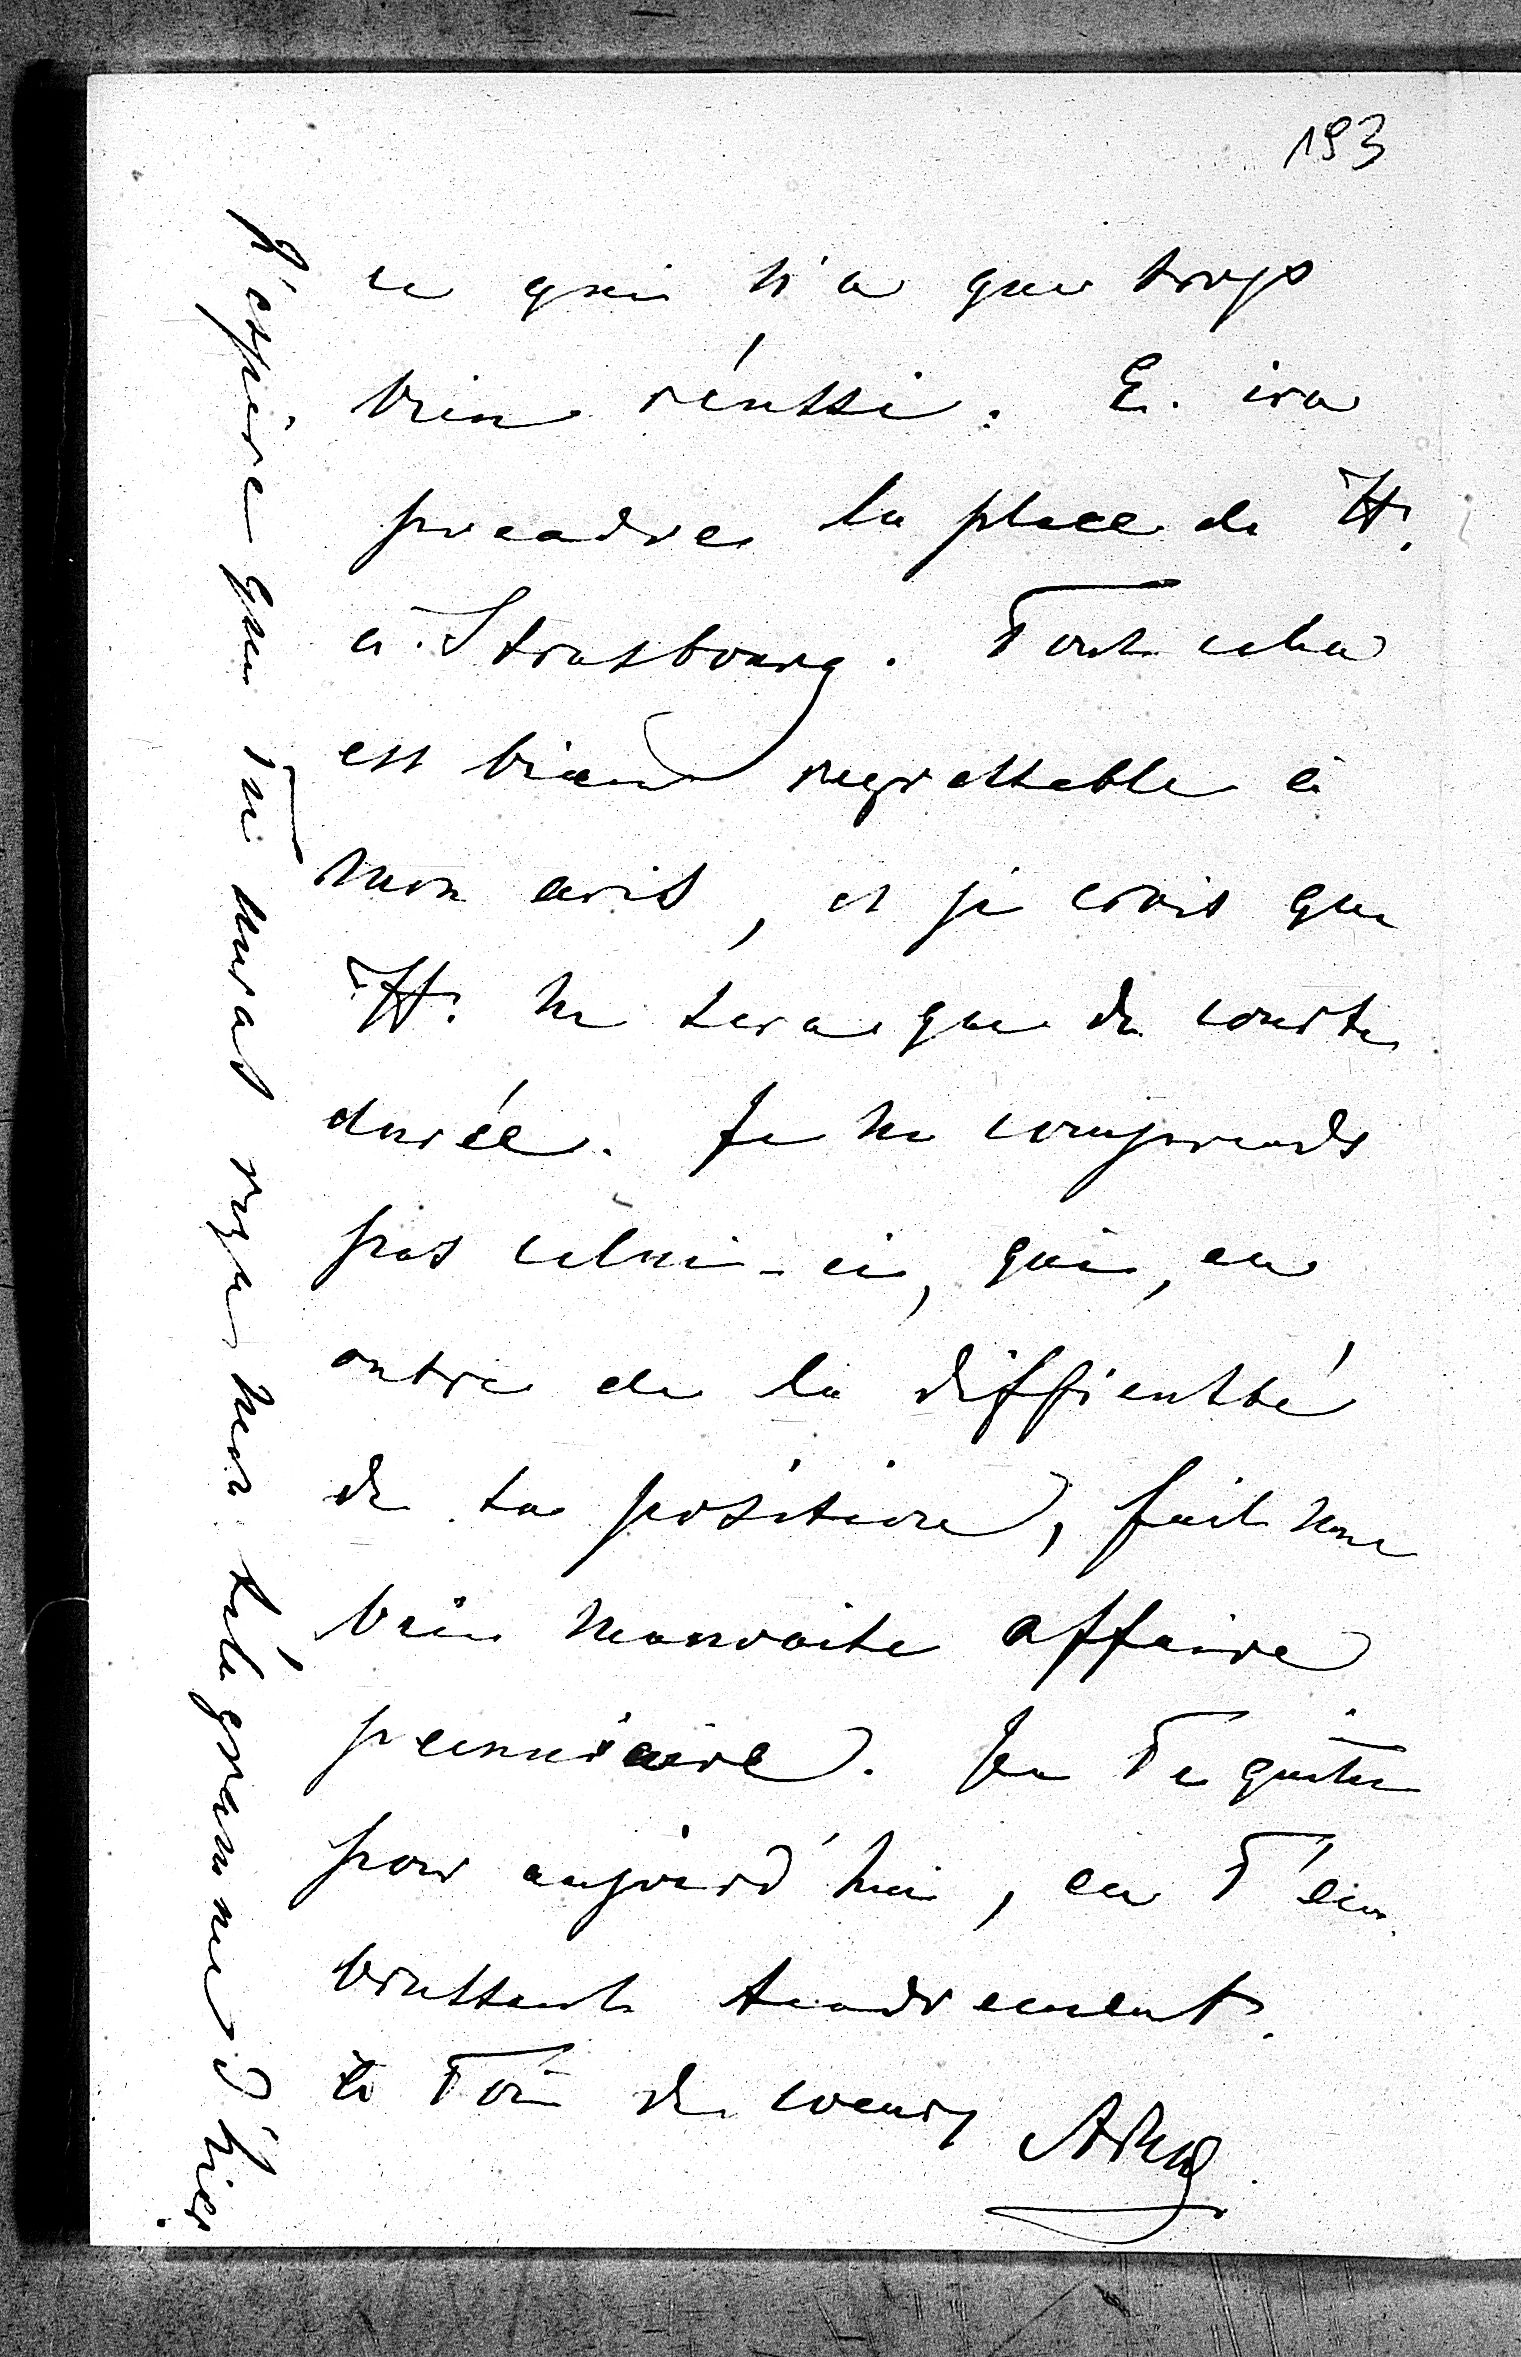 193
ce qui n'a que trop
bien réussi. E. ira
prendre la place de H.
à Strasbourg. Tout cela
est bien regrettable à
mon avis, et je crois que
H. ne sera que de courte
durée. Je ne comprends
pas celui-ci, qui, en
outre de la difficulté
de sa position, fait une
bien mauvaise affaire
pécuniaire. Je Te quitte
pour aujourd'hui, en T'em
brassant tendrement.
à Toi de coeur
J'espère que Tu auras reçu mon télégramme d'hier.